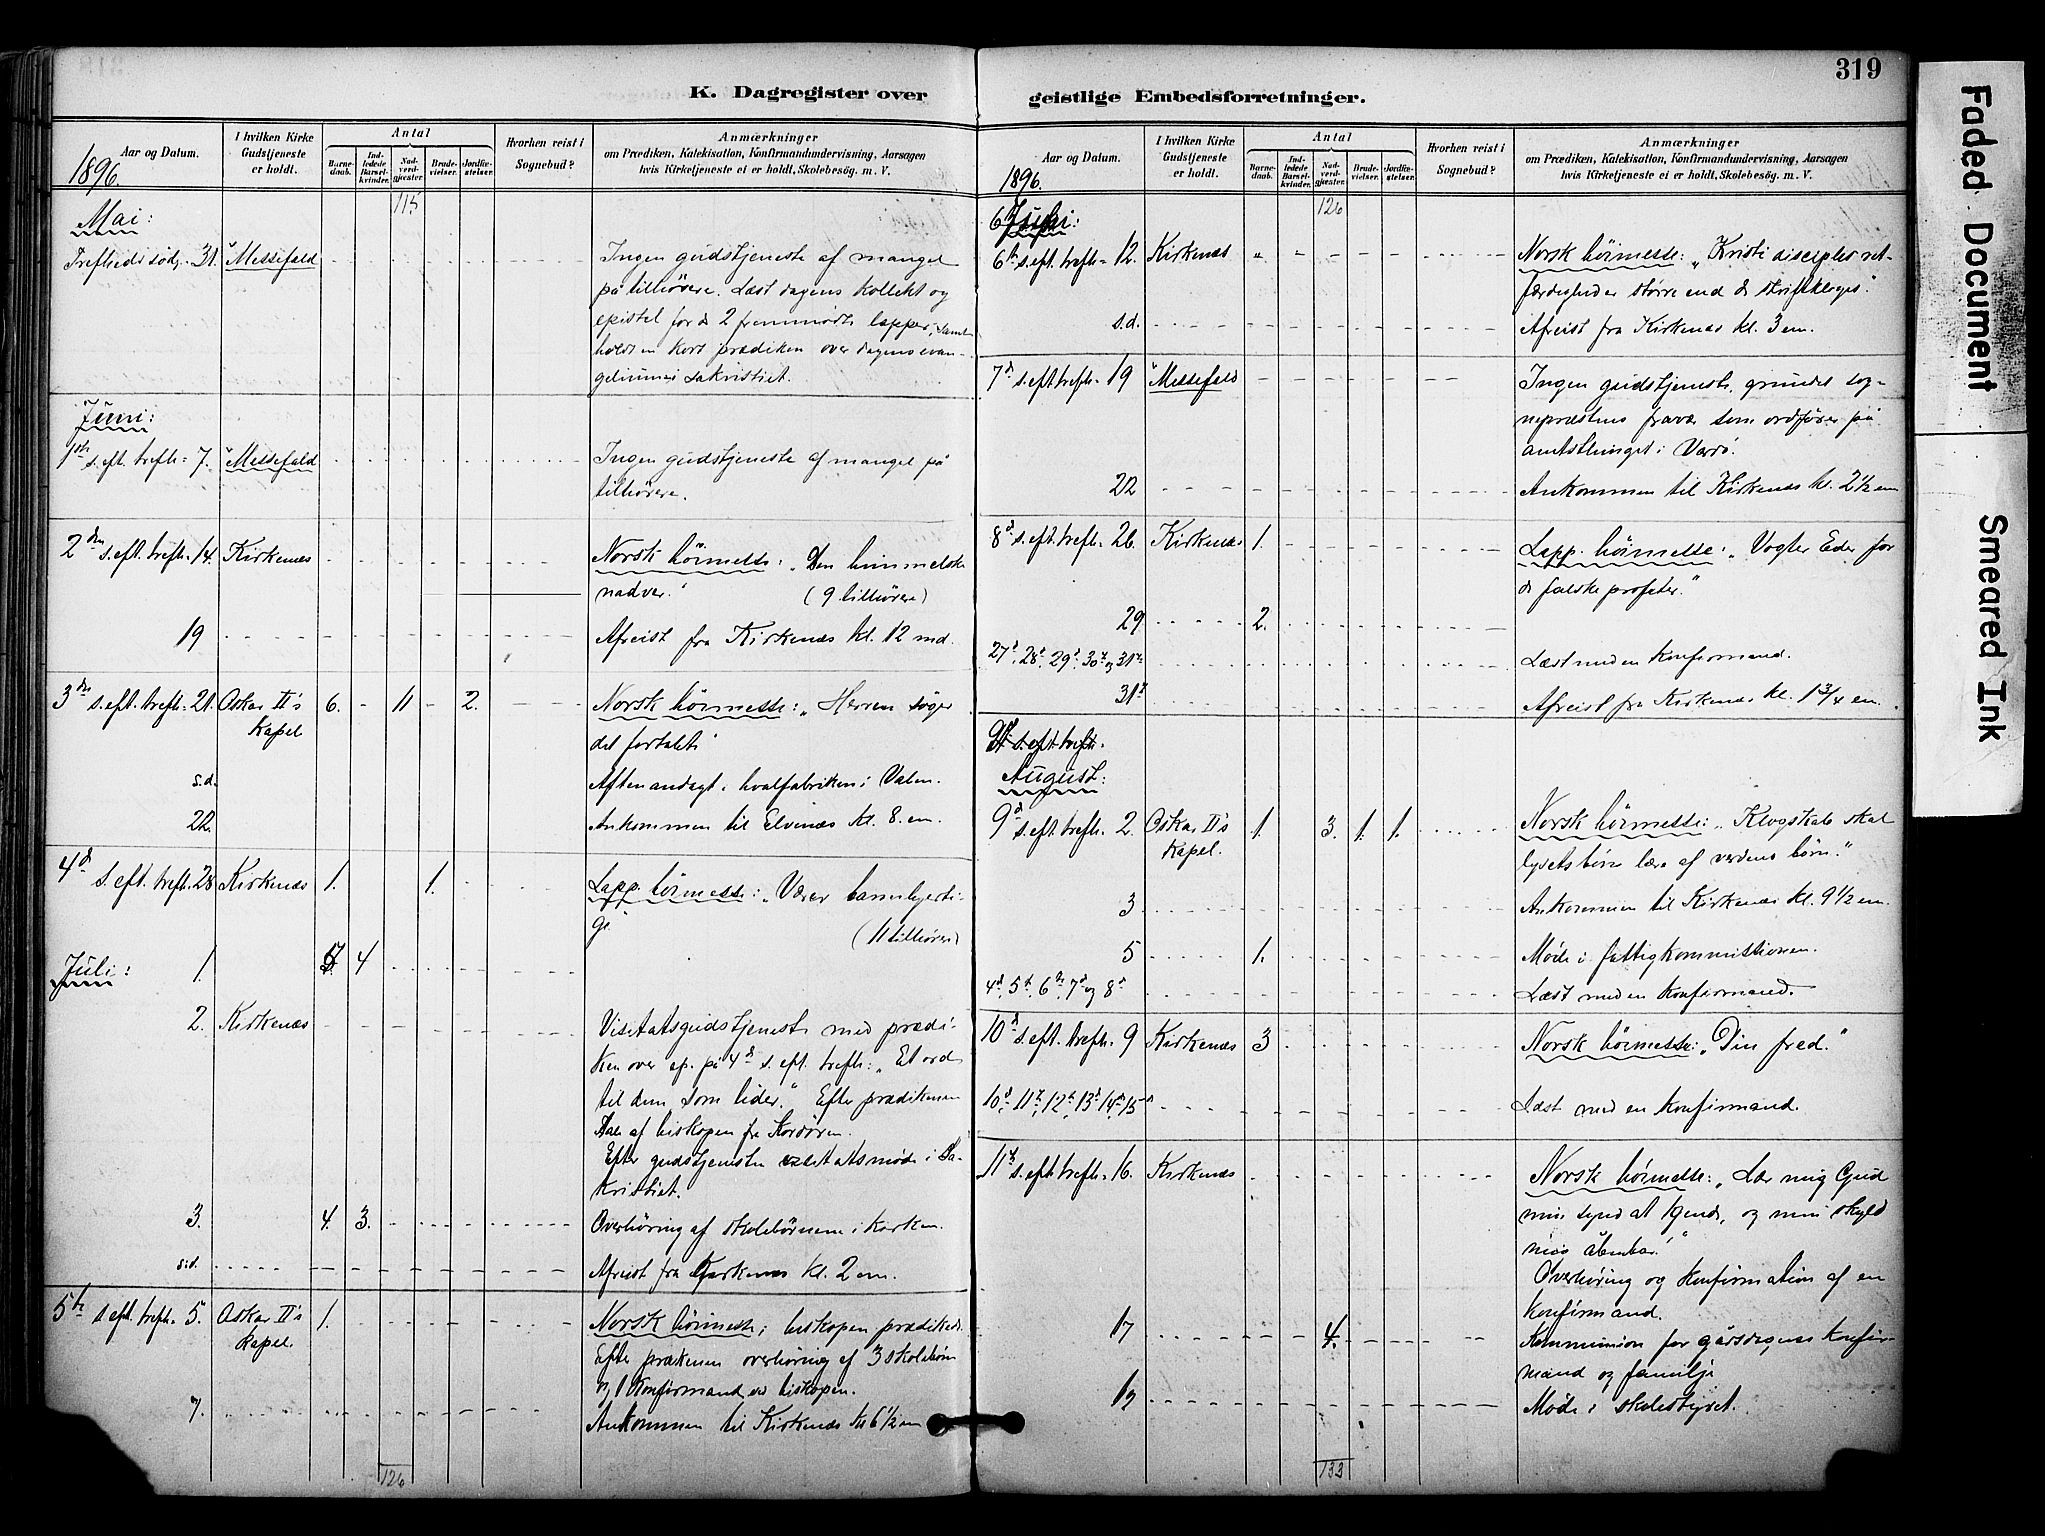 319
K. Dagregister over
geistlige Embedsforretninger.
Aar og Datum.
1896.
I hvilken Kirke Gudstjeneste er holdt.
Antal
Barnedaab.
Indledede Barselkvinder.
Nadverdgjester
Brudevielser.
Jordfæstelser.
Hvorhen reist i Sognebud?
Anmærkninger
om Prædiken, Katekisation, Konfirmandundervisning, Aarsagen
hvis Kirketjeneste ei er holdt, Skolebesøg. m. V.
115
Mai:
31. "Messefald Ingen gudstjeneste af mangel
på tilhörere. Læst dagens kollekt og
epistel for de 2 fremmödte lapper, samt
holdt en kort prædiken over dagens evan-
geliums i sakristiet.
Juni:
1ste s. eft. trefh. 7. "Messefald Ingen gudstjeneste af mangel på
tilhörere.
2den s. eft. trefh. 14. Kirkenæs Norsk höimesse: "Den himmelske
nadver." (9 tilhörere)
19 Afreist fra Kirkenæs kl. 12 md.
3die s. eft. trefh. 21. Oskar II's 6. - 11 - 2. Norsk höimesse: "Herren söger
Kapel det fortabte"
s.d. Aftenandagt i hvalfabriken i
22. Ankommen til Elvenæs kl. 8 em.
4d s. eft. trefh. 28 Kirkenæs 1. 1. Lapp. höimesse: "Værer barmhjerti-
ge" (11 tilhörere)
Juli: 1. 4
2. Kirkenæs Visitatsgudstjeneste med prædi-
ken over ep. på 4d s. eft. trefh: "Et ord
til dem som lider." Efter prædikenen
Tale af biskopen fra Kordören.
Efter gudstjenesten visitatsmöde i Sa-
kristiet.
3. 4. 3. Overhöring af skolebörnene i kirken.
s.d. Afreist fra Kirkenæs kl. 2 em.
5te s. eft. trefh. 5. Oskar II's 1. Norsk höimesse; biskopen prædikede.
Kapel. Efter prækenen overhöring af 3 skolebörn
og 1 konfirmand ved biskopen.
7. Ankommen til Kirkenæs kl 6 1/2 em
126
Aar og Datum.
1896.
I hvilken Kirke Gudstjeneste er holdt.
Antal
Barnedaab.
Indledede Barselkvinder.
Nadverdgjester
Brudevielser.
Jordfæstelser.
Hvorhen reist i Sognebud?
Anmærkninger
om Prædiken, Katekisation, Konfirmandundervisning, Aarsagen
hvis Kirketjeneste ei er holdt, Skolebesøg. m. V.
126
Juli:
6te s. eft. trefh. 12. Kirkenæs Norsk höimesse: "Kristi disciples ret-
færdighed er större end de skriftkloges."
s.d. Afreist fra Kirkenæs kl. 3 em.
7d s. eft. trefh. 19 "Messefald Ingen gudstjeneste, grundet sog-
nepræstens fravær som ordförer på
amtsthinget i Vardö.
22 Ankommen til Kirkenæs kl. 2 1/2 em
8d s. eft. trefh. 26. Kirkenæs 1. Lapp. höimesse: "Vogter Eder for
de falske profeter."
29 2.
27d, 28d, 29d, 30te og 31te Læst med en konfirmand.
31te Afreist fra Kirkenæs kl. 1 3/4 em.
9d s. eft. trefh.
August:
9d s. eft. trefh. 2. Oskar II's 1. 3. 1. 1. Norsk höimesse: "Klogskab skal
Kapel. lysets börn lære af verdens börn."
3 Ankommen til Kirkenæs kl. 9 1/2 em.
5 1. Möde i fattigkommissionen.
4d, 5te, 6te, 7d og 8d Læst med en konfirmand.
10d s. eft. trefh. 9 Kirkenæs 3 Norsk höimesse: "Din fred."
10d, 11te, 12te, 13d, 14d, 15d Læst med en konfirmand.
11te s. eft. trefh. 16. Kirkenæs Norsk höimesse: "Lær mig Gud
min synd at kjende, og min skyld
mig åbenbar!"
Overhöring og konfirmation af en
konfirmand.
17 4. Kommunion for gårsdagens konfir-
mand og familje
19 Möde i skolestyret.
133
Faded Document
Smeared Ink